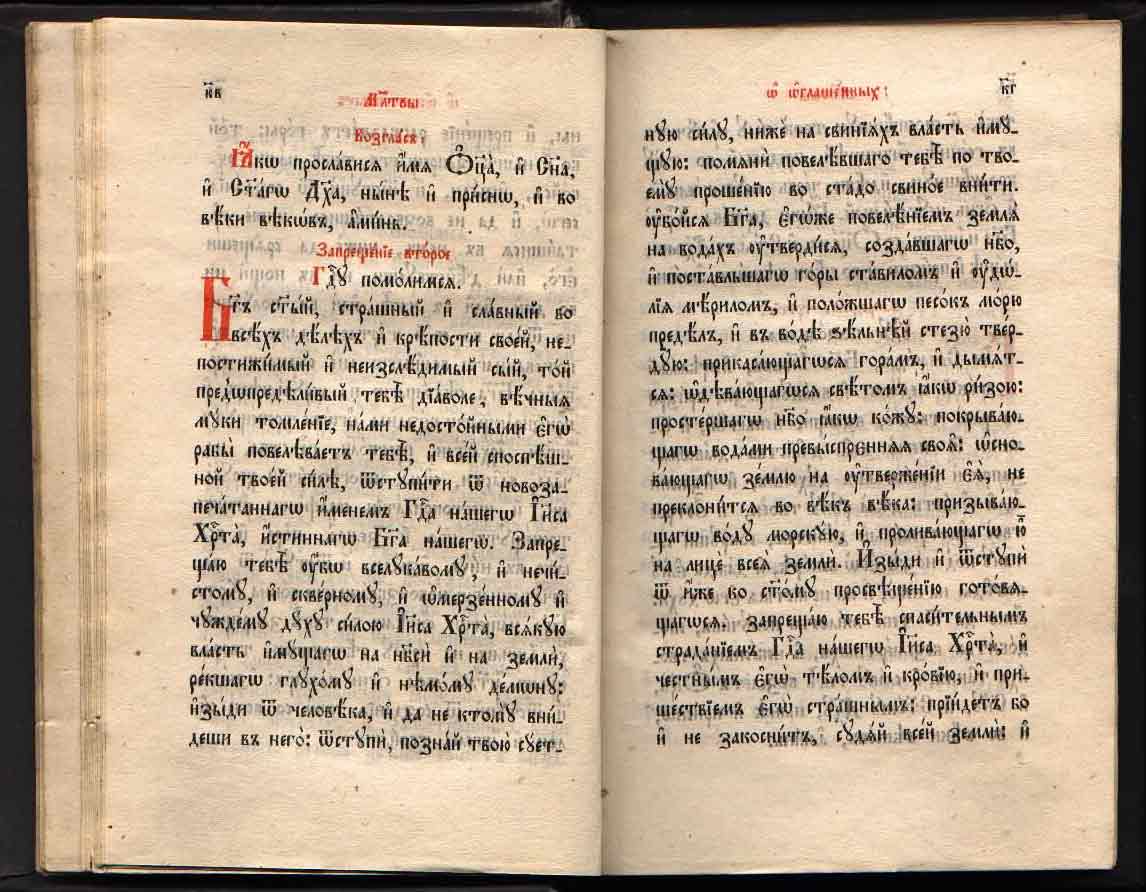 Мл҃твы
Возгла́съ:
Ꙗ҆́кѡ просла́висѧ и҆́мѧ Ѻ҆ц҃а̀, и҆ Сн҃а,
и҆ Ст҃а́гѡ Дх҃а, ны́нѣ и҆ при́снѡ, и҆ во
вѣ́ки вѣкѡ́въ, а҆ми́нь.
Запреще́нїе второ́е
Гдⷭ҇ꋋ помо́лимсѧ.
Бг҃ъ ст҃ы́й, стра́шный и҆ сла́вный во
всѣ́хъ дѣ́лѣхъ и҆ крѣ́пости свое́й, не-
постижи́мый и҆ неизслѣди́мый сы́й, то́й
предѡпредѣли́вый тебѣ̀ дїа́воле, вѣ́чныѧ
мꋋ́ки томле́нїе, на́ми недосто́йными є҆гѡ̀
рабы̀ повелѣва́етъ тебѣ̀, и҆ все́й споспѣ́ш-
ной твое́й си́лѣ, ѿстꋋпи́ти ѿ новоза-
печа́таннагѡ и҆́менемъ Гдⷭ҇а на́шегѡ І҆и҃са
Хрⷭ҇та̀, и҆́стиннагѡ Бг҃а на́шегѡ. Запре-
ща́ю тебѣ̀ ᲂу҆́бѡ вселꋋка́вомꋋ, и҆ нечи́-
стомꋋ, и҆ скве́рномꋋ, и҆ ѡ҆мерзе́нномꋋ и҆
чꋋжде́мꋋ дꋋ́хꋋ си́лою І҆и҃са Хрⷭ҇та̀, всѧ́кꋋю
вла́сть и҆мꋋ́щагѡ на нб҃сѝ и҆ на землѝ,
ре́кшагѡ глꋋхо́мꋋ и҆ нѣмо́мꋋ де́мѡнꋋ:
и҆зы́ди ѿ человѣ́ка, и҆ да не ктомꋋ̀ вни́-
деши въ него̀: ѿстꋋпѝ, позна́й твою̀ сꋋ́ет-
ѡ҆ ѡ҆глаше́нныхъ:
кг҃
нꋋю си́лꋋ, ниже́ на свинїѧ́хъ вла́сть и҆мꋋ́-
щꋋю: помѧнѝ повелѣ́вшаго тебѣ̀ по тво-
емꋋ̀ проше́нїю во ста́до свино́е вни́ти.
ᲂу҆бо́йсѧ Бг҃а, є҆гѡ́же повелѣ́нїемъ землѧ̀
на вода́хъ ᲂу҆тверди́сѧ, созда́вшагѡ нб҃о,
и҆ поста́вльшагѡ го́ры ста́виломъ и҆ ᲂу҆до́-
лїѧ мѣ́риломъ, и҆ поло́жшагѡ песо́къ мо́рю
предѣ́лъ, и҆ въ водѣ̀ ѕѣ́льнѣй стезю̀ твер-
дꋋю: прикаса́ющагѡсѧ гора́мъ, и҆ дымѧ́т-
сѧ: ѡ҆дѣва́ющагѡсѧ свѣ́томъ ꙗ҆́кѡ ри́зою:
просте́ршагѡ нб҃о ꙗ҆́кѡ ко́жꋋ: покрыва́ю-
щагѡ вода́ми превы́спреннѧѧ своѧ̀: ѡ҆сно-
ва́ющагѡ зе́млю на ᲂу҆твержде́нїи є҆ѧ̀, не
преклони́тсѧ во вѣ́къ вѣ́ка: призыва́ю-
щагѡ во́дꋋ морскꋋ́ю, и҆ пролива́ющагѡ ю҆̀
на лицѐ всеѧ̀ землѝ. И҆зы́ди и҆ ѿстꋋпѝ
ѿ и҆̀же ко ст҃о́мꋋ просвѣще́нїю гото́вѧ-
щагѡсѧ. запреща́ю тебѣ̀ спаси́тельнымъ
страда́нїемъ Гдⷭ҇а на́шегѡ І҆и҃са Хрⷭ҇та̀, и҆
честны́мъ є҆гѡ̀ тѣ́ломъ и҆ кро́вїю, и҆ при-
ше́ствїемъ є҆гѡ̀ стра́шнымъ: прїи́детъ бо
и҆ не закосни́тъ, сꋋдѧ́й все́й землѝ: и҆